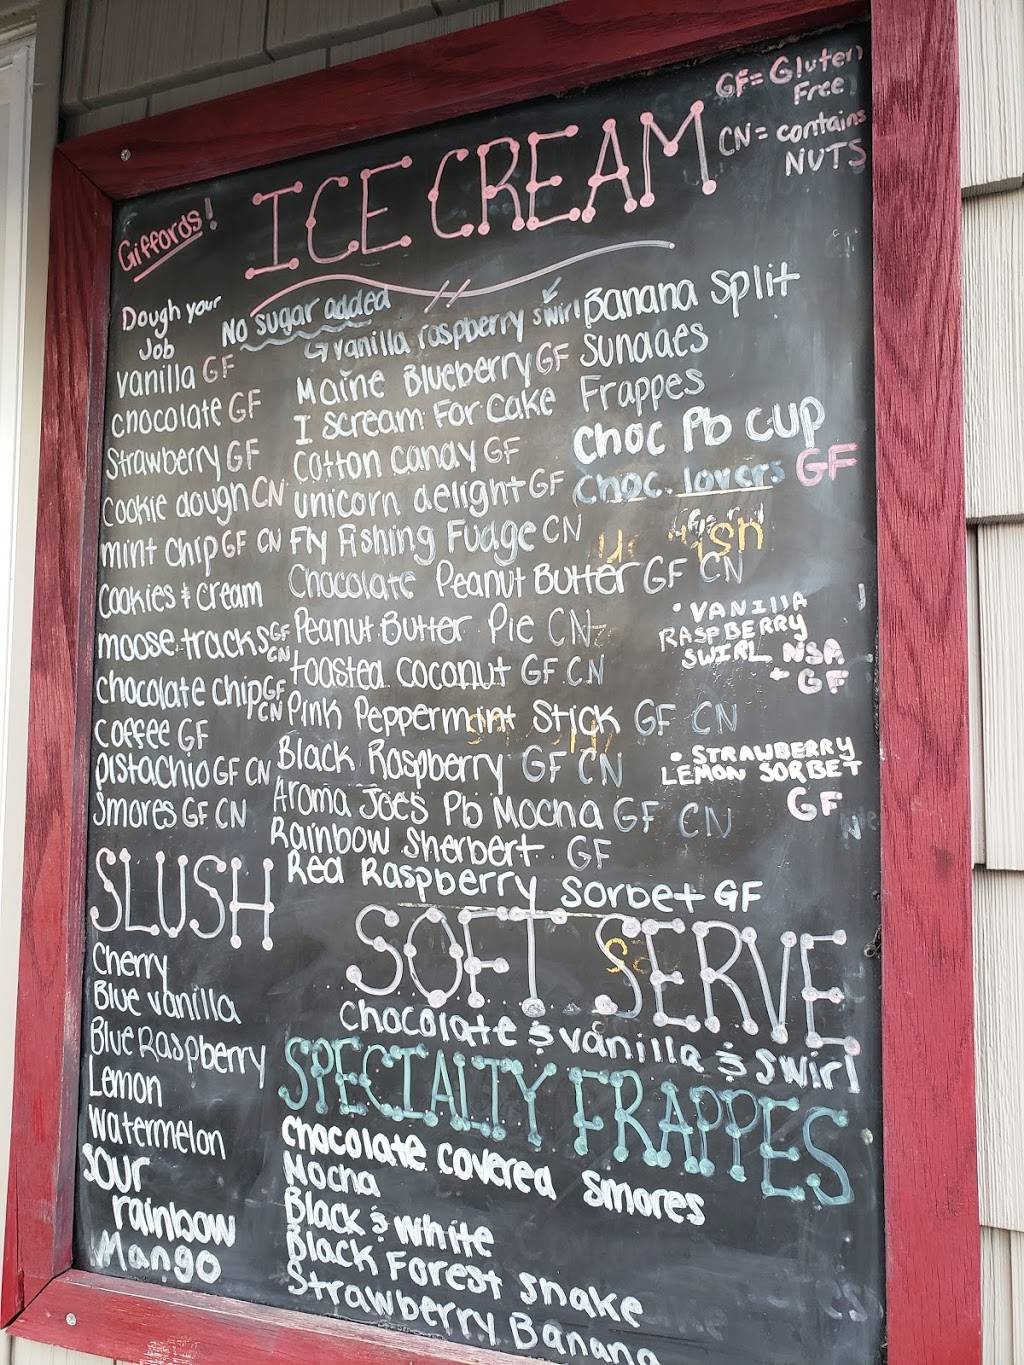 GF= Gluten
Free
CN = contains
NUTS
ICE CREAM
Giffords!
Dough your
Job
vanilla GF
chocolate GF
Strawberry GF
Cookie dough CN
mint chip GF CN
Cookies & Cream
moose tracks GF CN
chocolate chip GF CN
coffee GF
pistachio GF CN
Smores GF CN
No sugar added
vanilla raspberry swirl
Maine Blueberry GF
I Scream For Cake
Cotton candy GF
unicorn delight GF
Fly Fishing Fudge CN
Chocolate Peanut Butter GF CN
Peanut Butter Pie CN
toasted coconut GF CN
Pink Peppermint Stick GF CN
Black Raspberry GF CN
Aroma Joe's Pb Mocha GF CN
Rainbow Sherbert GF
Red Raspberry Sorbet GF
Banana Split
Sundaes
Frappes
Choc Pb cup
Choc. lovers GF
• VANIllA
RASPBERRY
SWIRL NSA
+ GF
• STRAWBERRY
LEMON SORBET
GF
SLUSH
Cherry
Blue vanilla
Blue Raspberry
Lemon
Watermelon
Sour
rainbow
Mango
SOFT SERVE
Chocolate & vanilla & swirl
SPECIALTY FRAPPES
Chocolate covered smores
Mocha
Black & white
Black Forest Shake
Strawberry Banana